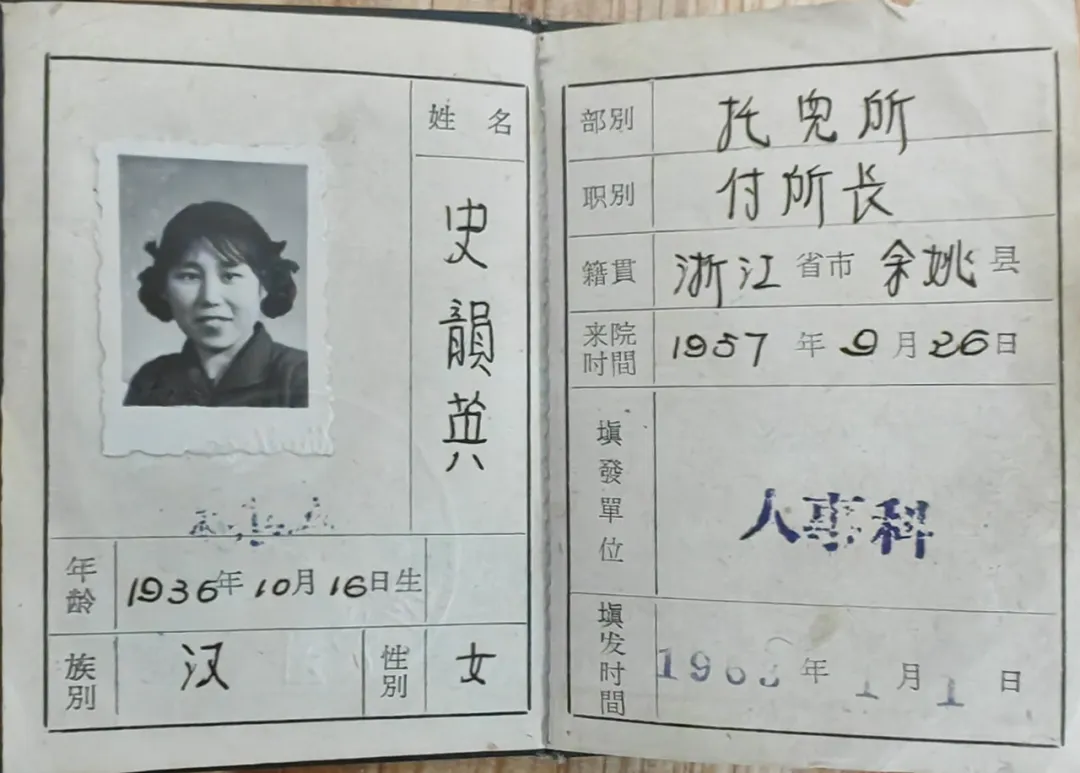 姓名
史韻英
年齡
1936年10月16日生
族別
汉
性別
女
部別
托児所
职別
付所长
籍貫
浙江省市余姚县
来院时間
1957年9月26日
填發單位
人事科
填发时間
196 年1月1日